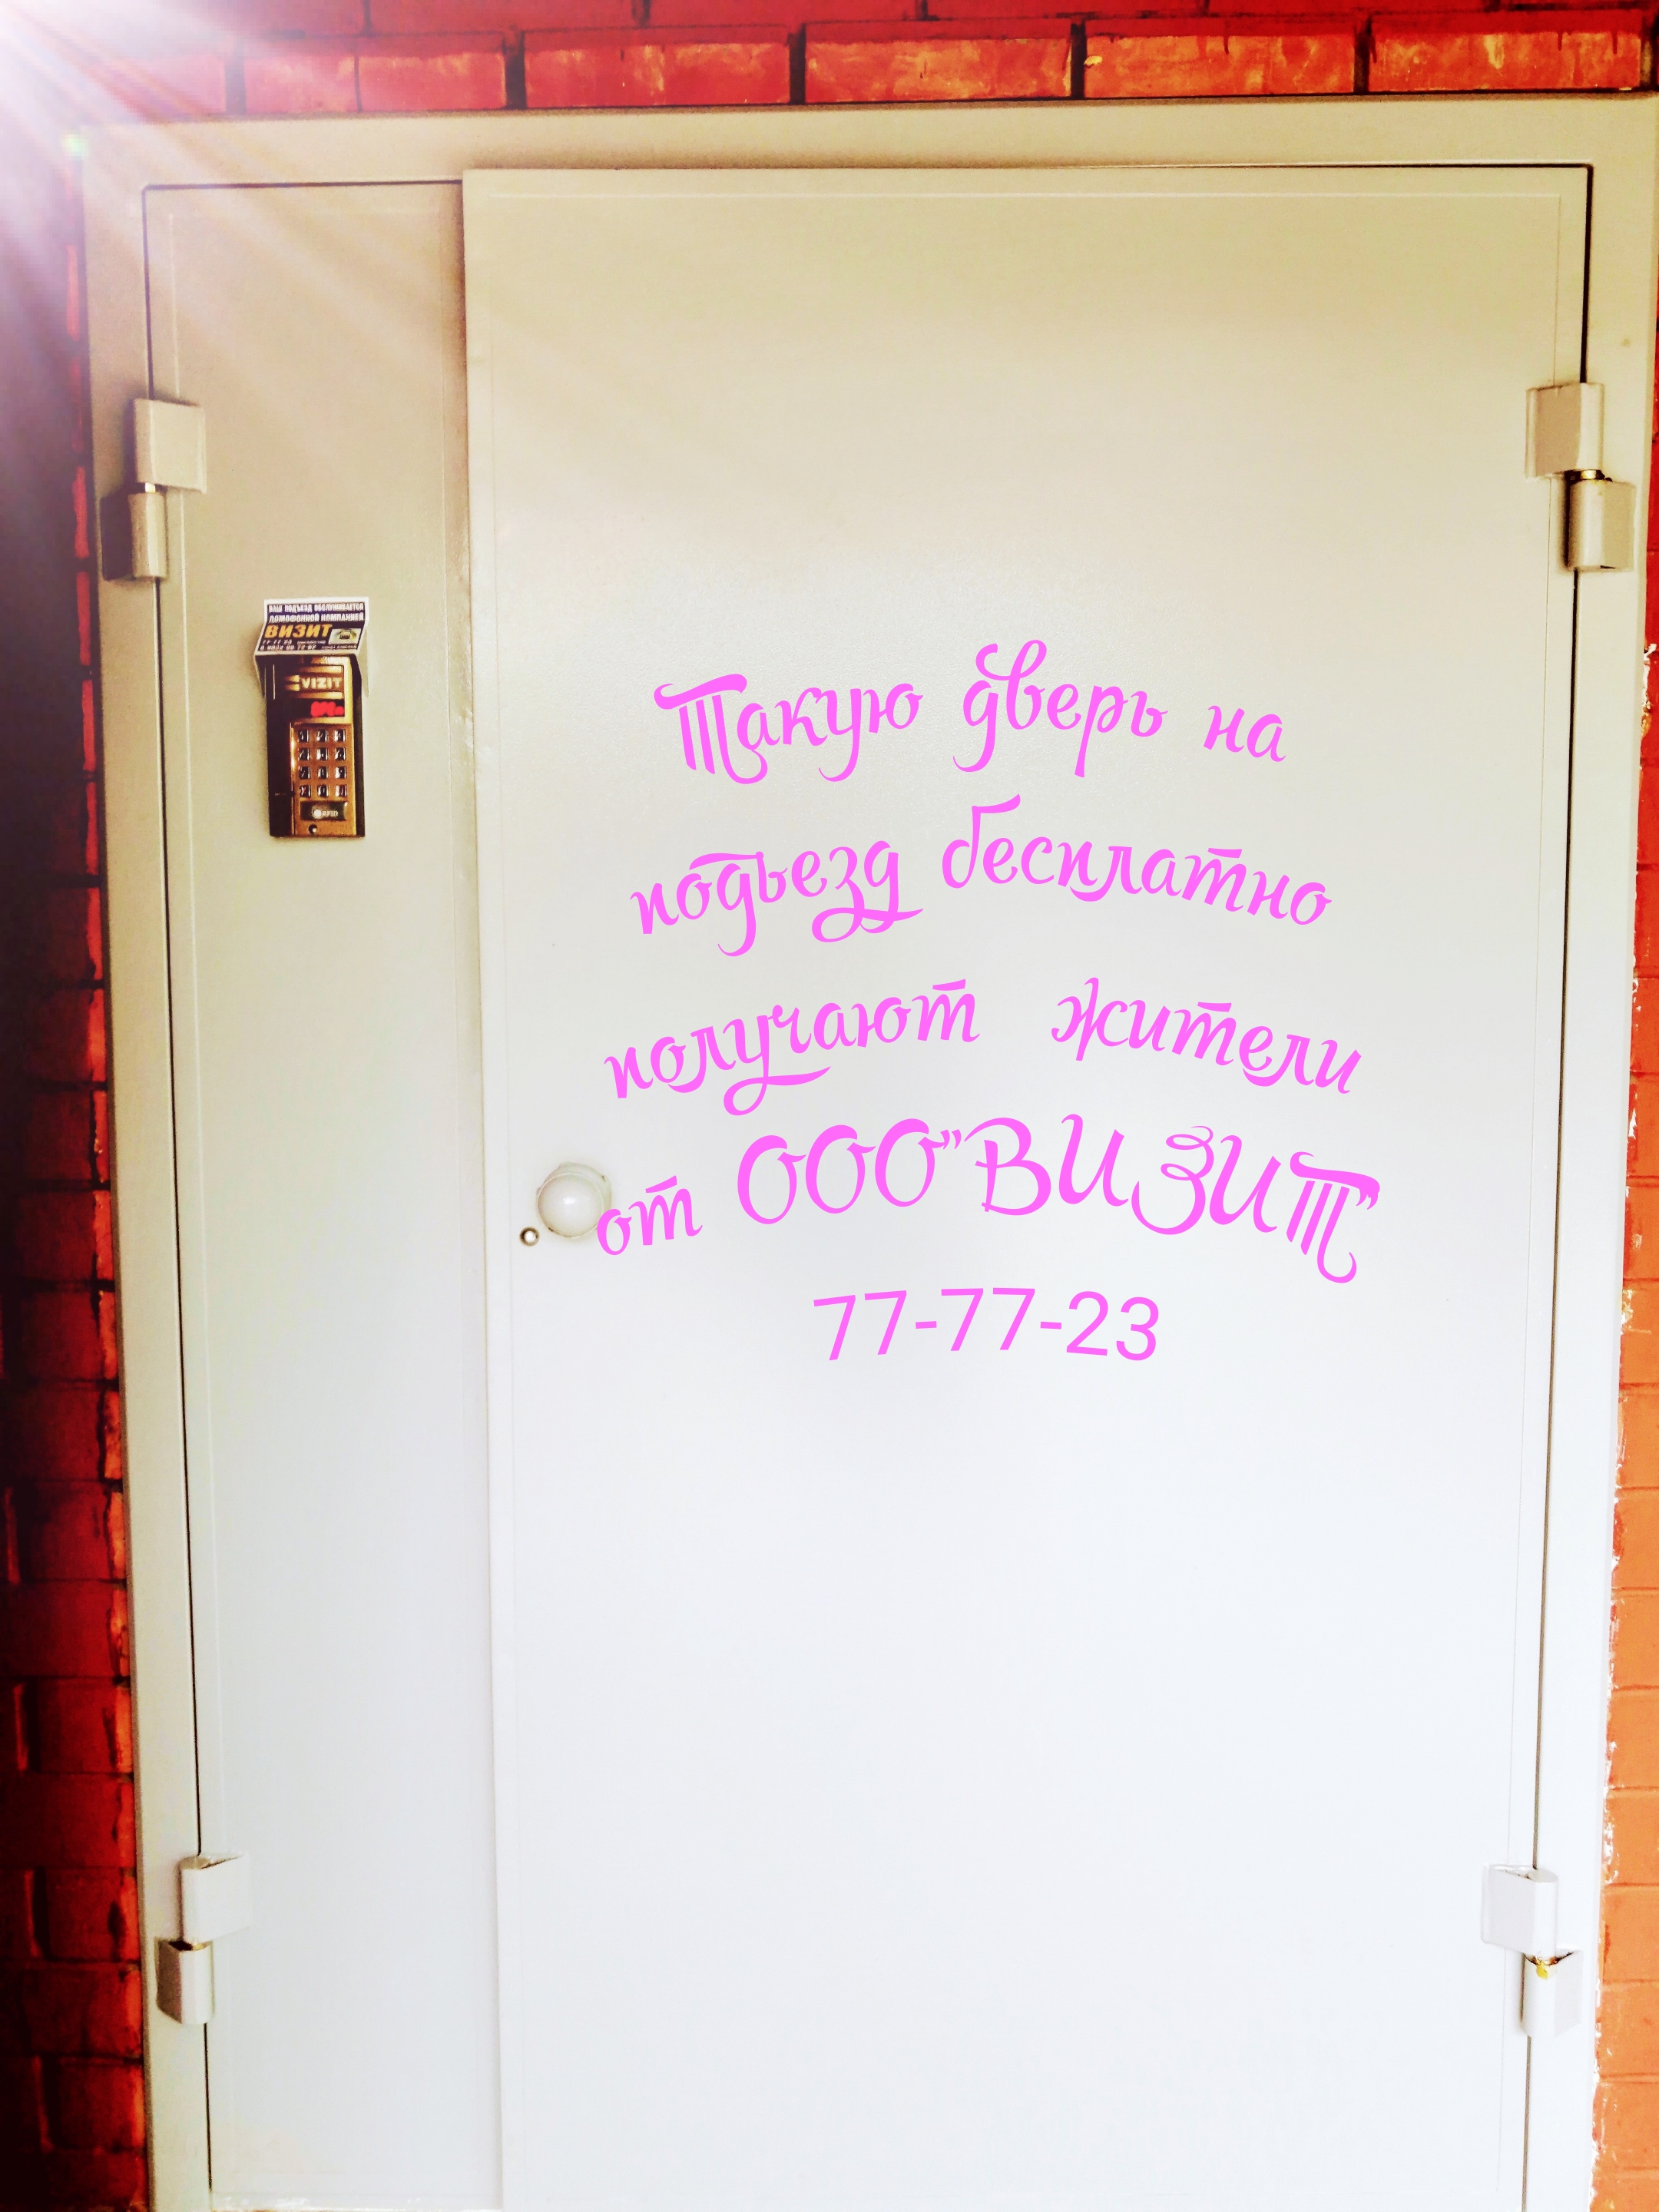 ВАШ ПОДЪЕЗД ОБСЛУЖИВАЕТСЯ
ДОМОФОННОЙ КОМПАНИЕЙ
ВИЗИТ
77-77-23
VIZIT
RFID
Такую дверь на
подьезд бесплатно
получают жители
от ООО"ВИЗИТ"
77-77-23